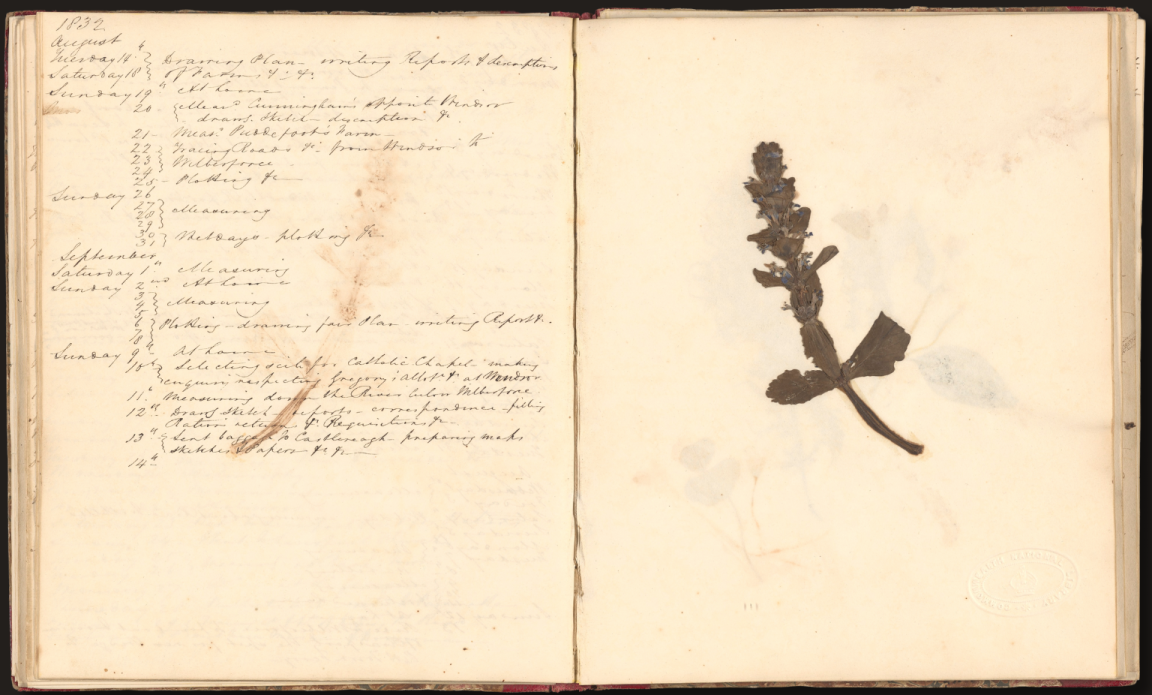 1832
August
Tuesday 14" Drawing Plan - writing Reports & descriptions
Saturday 18" of Farms &c &c.
Sunday 19" At home
20 - Meas.d Cunningham's Windsor
draw.g sketch - description &c.
21 - Meas.g Puddefoot's Farm -
22 Tracing Roads &c from Windsor to
23 Wilberforce
24
25 - Plotting &c
Sunday 26
27
28 Measuring
29
30 Wet days - plotting &c
31
September
Saturday 1" Measuring
Sunday 2nd At home
3
4 Measuring
5
6 Plotting - drawing fair Plan - writing Report &c.
7
8"
Sunday 9" At home
10" Selecting scite for Catholic Chapel - making
enquiry respecting Gregory's Allot.t &c at Windsor
11" Measuring down the River below Wilberforce
12" Draw.g Sketch - reports - correspondence - filling
Ration return &c Requisitions &c
13" Sent baggage to Castlereagh preparing maps
sketches & Papers &c &c
14"
111